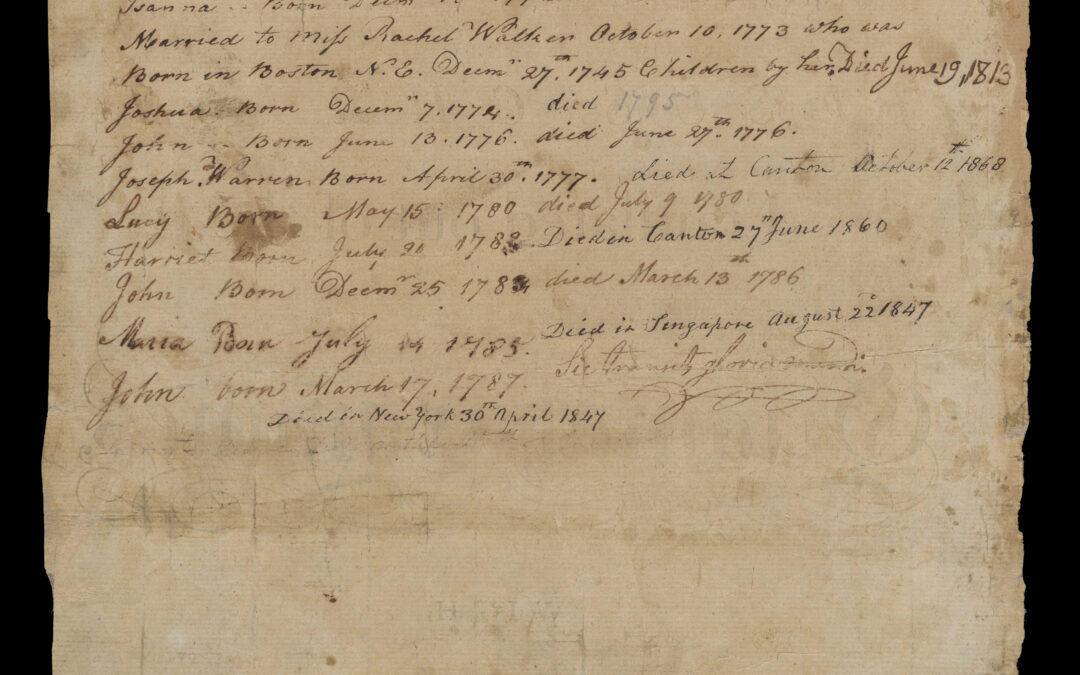 Isanna .. Born Decem
Married to Miss Rachel Walker October 10, 1773 who was
Born in Boston N.E. Decemr 27th. 1745 Children by her, Died June 19, 1813
Joshua. Born Decemr 7. 1774. died 1795
John .. Born June 13. 1776. died June 27th. 1776.
Joseph Warren Born April 30th. 1777. died at Canton October 12th 1868
Lucy Born May 15 1780 died July 9 1780
Harriet Born July 20 1782. Died in Canton 27th June 1860
John Born Decemr 25 1783 died March 13th 1786
Maria Born July 14 1785. Died in Singapore August 22d 1847
Sic transit gloria mundi.
John born March 17, 1787.
Died in New York 30th April 1847